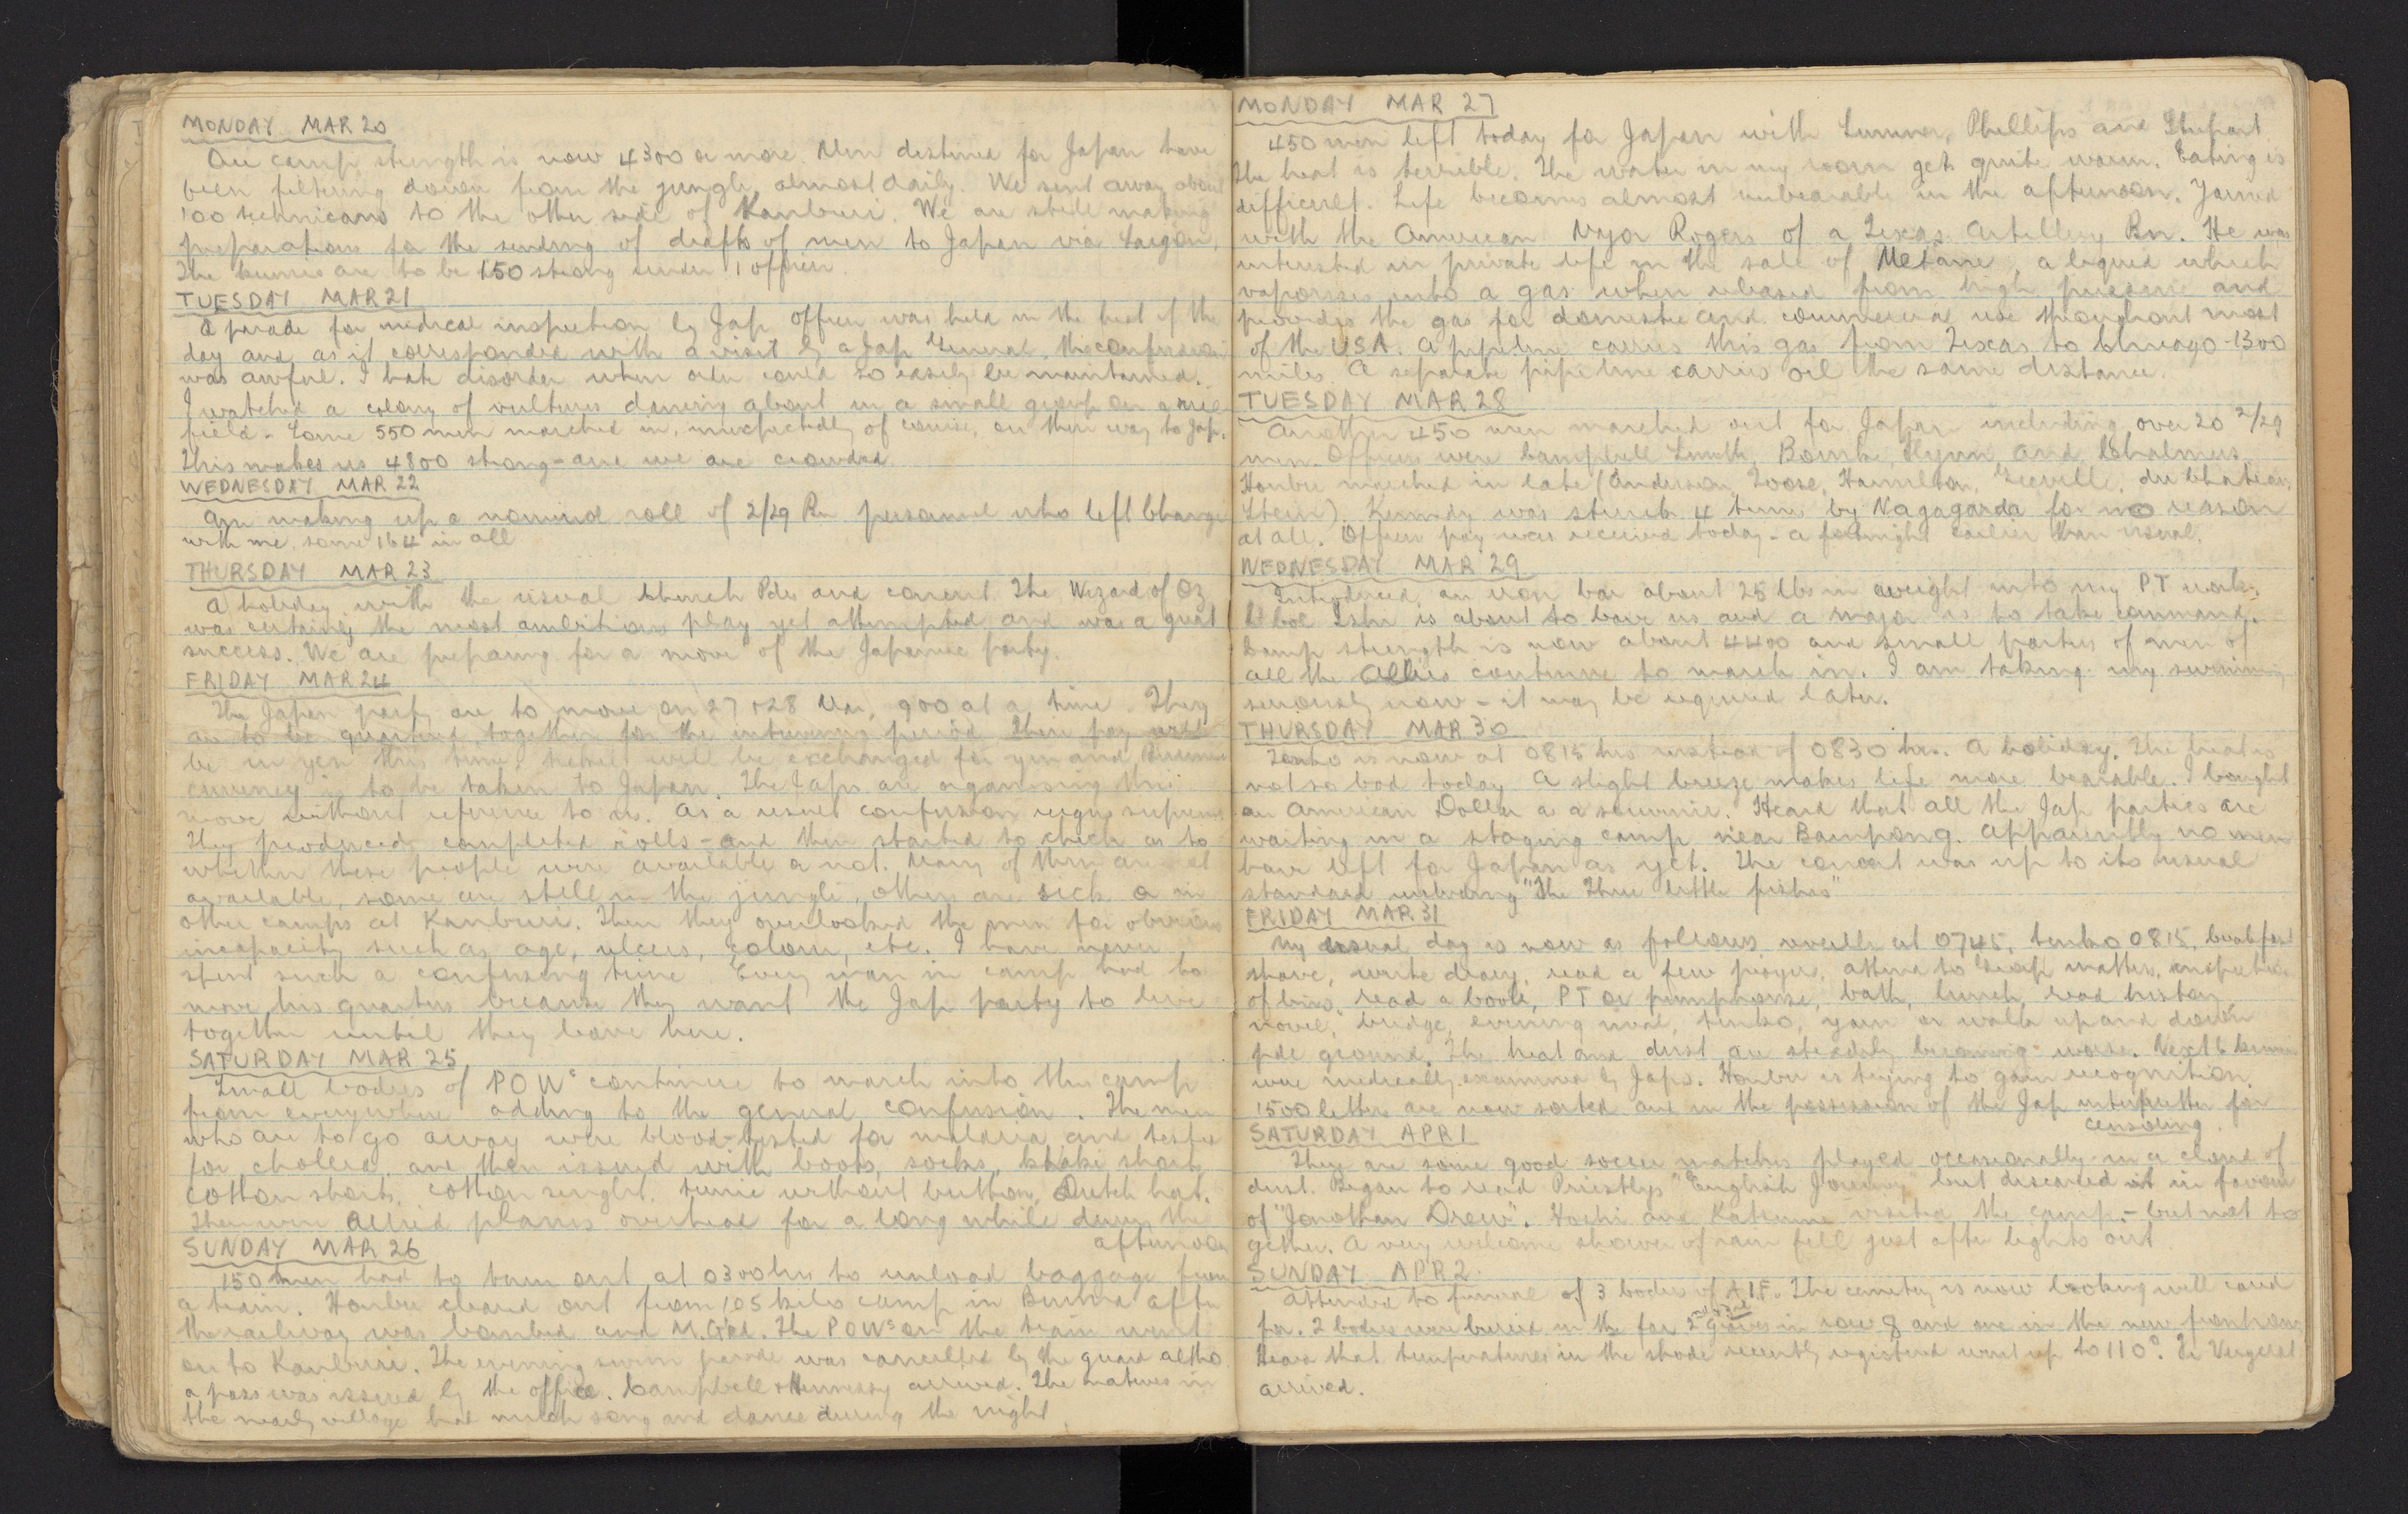 MONDAY MAR 20
Our camp strength is now 4300 or more. Men destined for Japan have
been filtering down from the jungle almost daily. We sent away about
100 technicians to the other side of Kanburi. We are still making
preparations for the sending of drafts of men to Japan via Saigon.
The kumis are to be 150 strong under 1 officer.
TUESDAY MAR 21
A parade for medical inspection by Jap officer was held in the heat of the
day and as it corresponded with a visit by a Jap General, the confusion
was awful. I hate disorder when order could so easily be maintained.
I watched a colony of vultures dancing about in a small group on a
field - Some 550 men marched in, unexpectedly of course, on their way to Jap.
This makes us 4800 strong - and we are crowded
WEDNESDAY MAR 22
Am making up a nominal roll of 2/29 Bn personnel who left Changi
with me, some 164 in all
THURSDAY MAR 23
A holiday with the usual Church Pdes and concert. The Wizard of Oz
was certainly the most ambitious play yet attempted and was a great
success. We are preparing for a move of the Japanese party.
FRIDAY MAR 24
The Japan party are to move on 27 + 28 Mar, 900 at a time. They
are to be quartered together for the intervening period. Their pay will
be in yen this time, will be exchanged for yen and Burmese
currency is to be taken to Japan. The Japs are organising this
move without reference to us. As a result confusion reigns supreme
They produced completed rolls - and then started to check as to
whether these people were available or not. Many of them are not
available, some are still in the jungle, others are sick or in
other camps at Kanburi. Then they overlooked the men for obvious
incapacity such as age, ulcers, colour, etc. I have never
spent such a confusing time. Every man in camp had to
move his quarters because they want the Jap party to live
together until they leave here.
SATURDAY MAR 25
Small bodies of POWs continue to march into this camp
from everywhere adding to the general confusion. The men
who are to go away were blood-tested for malaria and tested
for cholera and then issued with boots, socks, khaki shorts
cotton shorts, cotton singlet, tunic without buttons, Dutch hat.
There were Allied planes overhead for a long while during the
afternoon
SUNDAY MAR 26
150 men had to turn out at 0300 hrs to unload baggage from
a train. Honbu cleared out from 105 kilo camp in Burma after
the railway was bombed and M.G'ed. The POWs on the train went
on to Kanburi. The evening swim parade was cancelled by the guard altho
a pass was issued by the office. Campbell + Hennessy arrived. The natives in
the nearby village had much song and dance during the night
MONDAY MAR 27
450 men left today for Japan with Sumner, Phillips and Stupart.
The heat is terrible. The water in my room gets quite warm. Eating is
difficult. Life becomes almost unbearable in the afternoon. Yarned
with the American Major Rogers of a Texas Artillery Bn. He was
interested in private life in the sale of Metane, a liquid which
vaporises into a gas when released from high pressure and
provides the gas for domestic and commercial use throughout most
of the USA. A pipeline carries this gas from Texas to Chicago - 1300
miles. A separate pipe line carries oil the same distance.
TUESDAY MAR 28
Another 450 men marched out for Japan including over 20 2/29
men. Officers were Campbell Smith, Flynn and Chalmers.
Honbu marched in late (Anderson, Loose, Hamilton, du Chateau,
Stein). Kennedy was struck 4 times by Nagagarda for no reason
at all. Officers pay was received today - a fortnight earlier than usual.
WEDNESDAY MAR 29
Introduced an iron bar about 25 lbs in weight into my PT work.
Lt Col Ishi is about to leave us and a major is to take command.
Camp strength is now about 4400 and small parties of men of
all the Allies continue to march in. I am taking my swimming
seriously now - it may be required later.
THURSDAY MAR 30
Tenko is now at 0815 hrs instead of 0830 hrs. A holiday. The heat is
not so bad today. A slight breeze makes life more bearable. I bought
an American Dollar as a souvenir. Heard that all the Jap parties are
waiting in a staging camp near Bampong. Apparently no men
have left for Japan as yet. The concert was up to its usual
standard including "The Three little fishes"
FRIDAY MAR 31
My usual day is now as follows, reveille at 0745, tenko 0815, breakfast
shave, write diary, read a few prayers, attend to Group matters, inspection
of lines, read a book, PT or pumphouse, bath, lunch, read history
novel, bridge, evening meal, tenko, yarn or walk up and down
pde ground. The heat and dust are steadily becoming worse. Next 6 kumis
were medically examined by Japs. Honbu is trying to gain recognition.
1500 letters are now sorted and in the possession of the Jap interpretter for
censoring.
SATURDAY APR 1
There are some good soccer matches played occasionally - in a cloud of
dust. Began to read Priestlys "English Journey" but discarded it in favour
of "Jonathan Drew". Hoshi and Katsumi visited the camp - but not to
gether. A very welcome shower of rain fell just after lights out
SUNDAY APR 2
Attended to funeral of 3 bodies of A.I.F. The cemetery is now looking well cared
for. 2 bodies were buried in the far 2 graves in row 8 and one in the new
Hear that temperatures in the shade recently registered went up to 110°.
arrived.